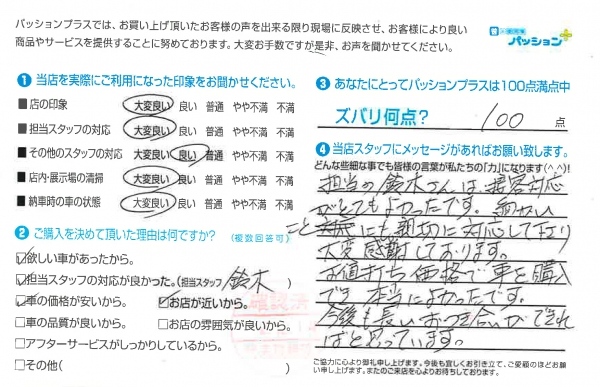 パッションプラスでは、お買い上げ頂いたお客様の声を出来る限り現場に反映させ、お客様により良い
商品やサービスを提供することに努めております。大変お手数ですが是非、お声を聞かせてください。
パッション
❶ 当店を実際にご利用になった印象をお聞かせください。
■店の印象 大変良い 良い 普通 やや不満 不満
■担当スタッフの対応 大変良い 良い 普通 やや不満 不満
■その他のスタッフの対応 大変良い 良い 普通 やや不満 不満
■店内・展示場の清掃 大変良い 良い 普通 やや不満 不満
■納車時の車の状態 大変良い 良い 普通 やや不満 不満
❷ ご購入を決めて頂いた理由は何ですか？（複数回答可）
☑欲しい車があったから。
☑担当スタッフの対応が良かった。(担当スタッフ 鈴木 )
☑車の価格が安いから。 ☑お店が近いから。
□車の品質が良いから。 □お店の雰囲気が良いから。
□アフターサービスがしっかりしているから。
□その他(
❸ あなたにとってパッションプラスは100点満点中
ズバリ何点？ 100 点
❹ 当店スタッフにメッセージがあればお願い致します。
どんな些細な事でも皆様の言葉が私たちの「力」になります(^^)!
担当の鈴木さんは、接客対応
がとてもよかったです。細かい
ことにも親切に対応しており
大変感謝しております。
お値打ち価格で車を購入
でき本当によかったです。
今後も長いおつき合いができれ
ばと思っています。
ご協力に心より御礼申し上げます。今後も宜しくお引き立て、ご愛顧のほどお願
い申し上げます。またのご来店を心よりお待ちしております。